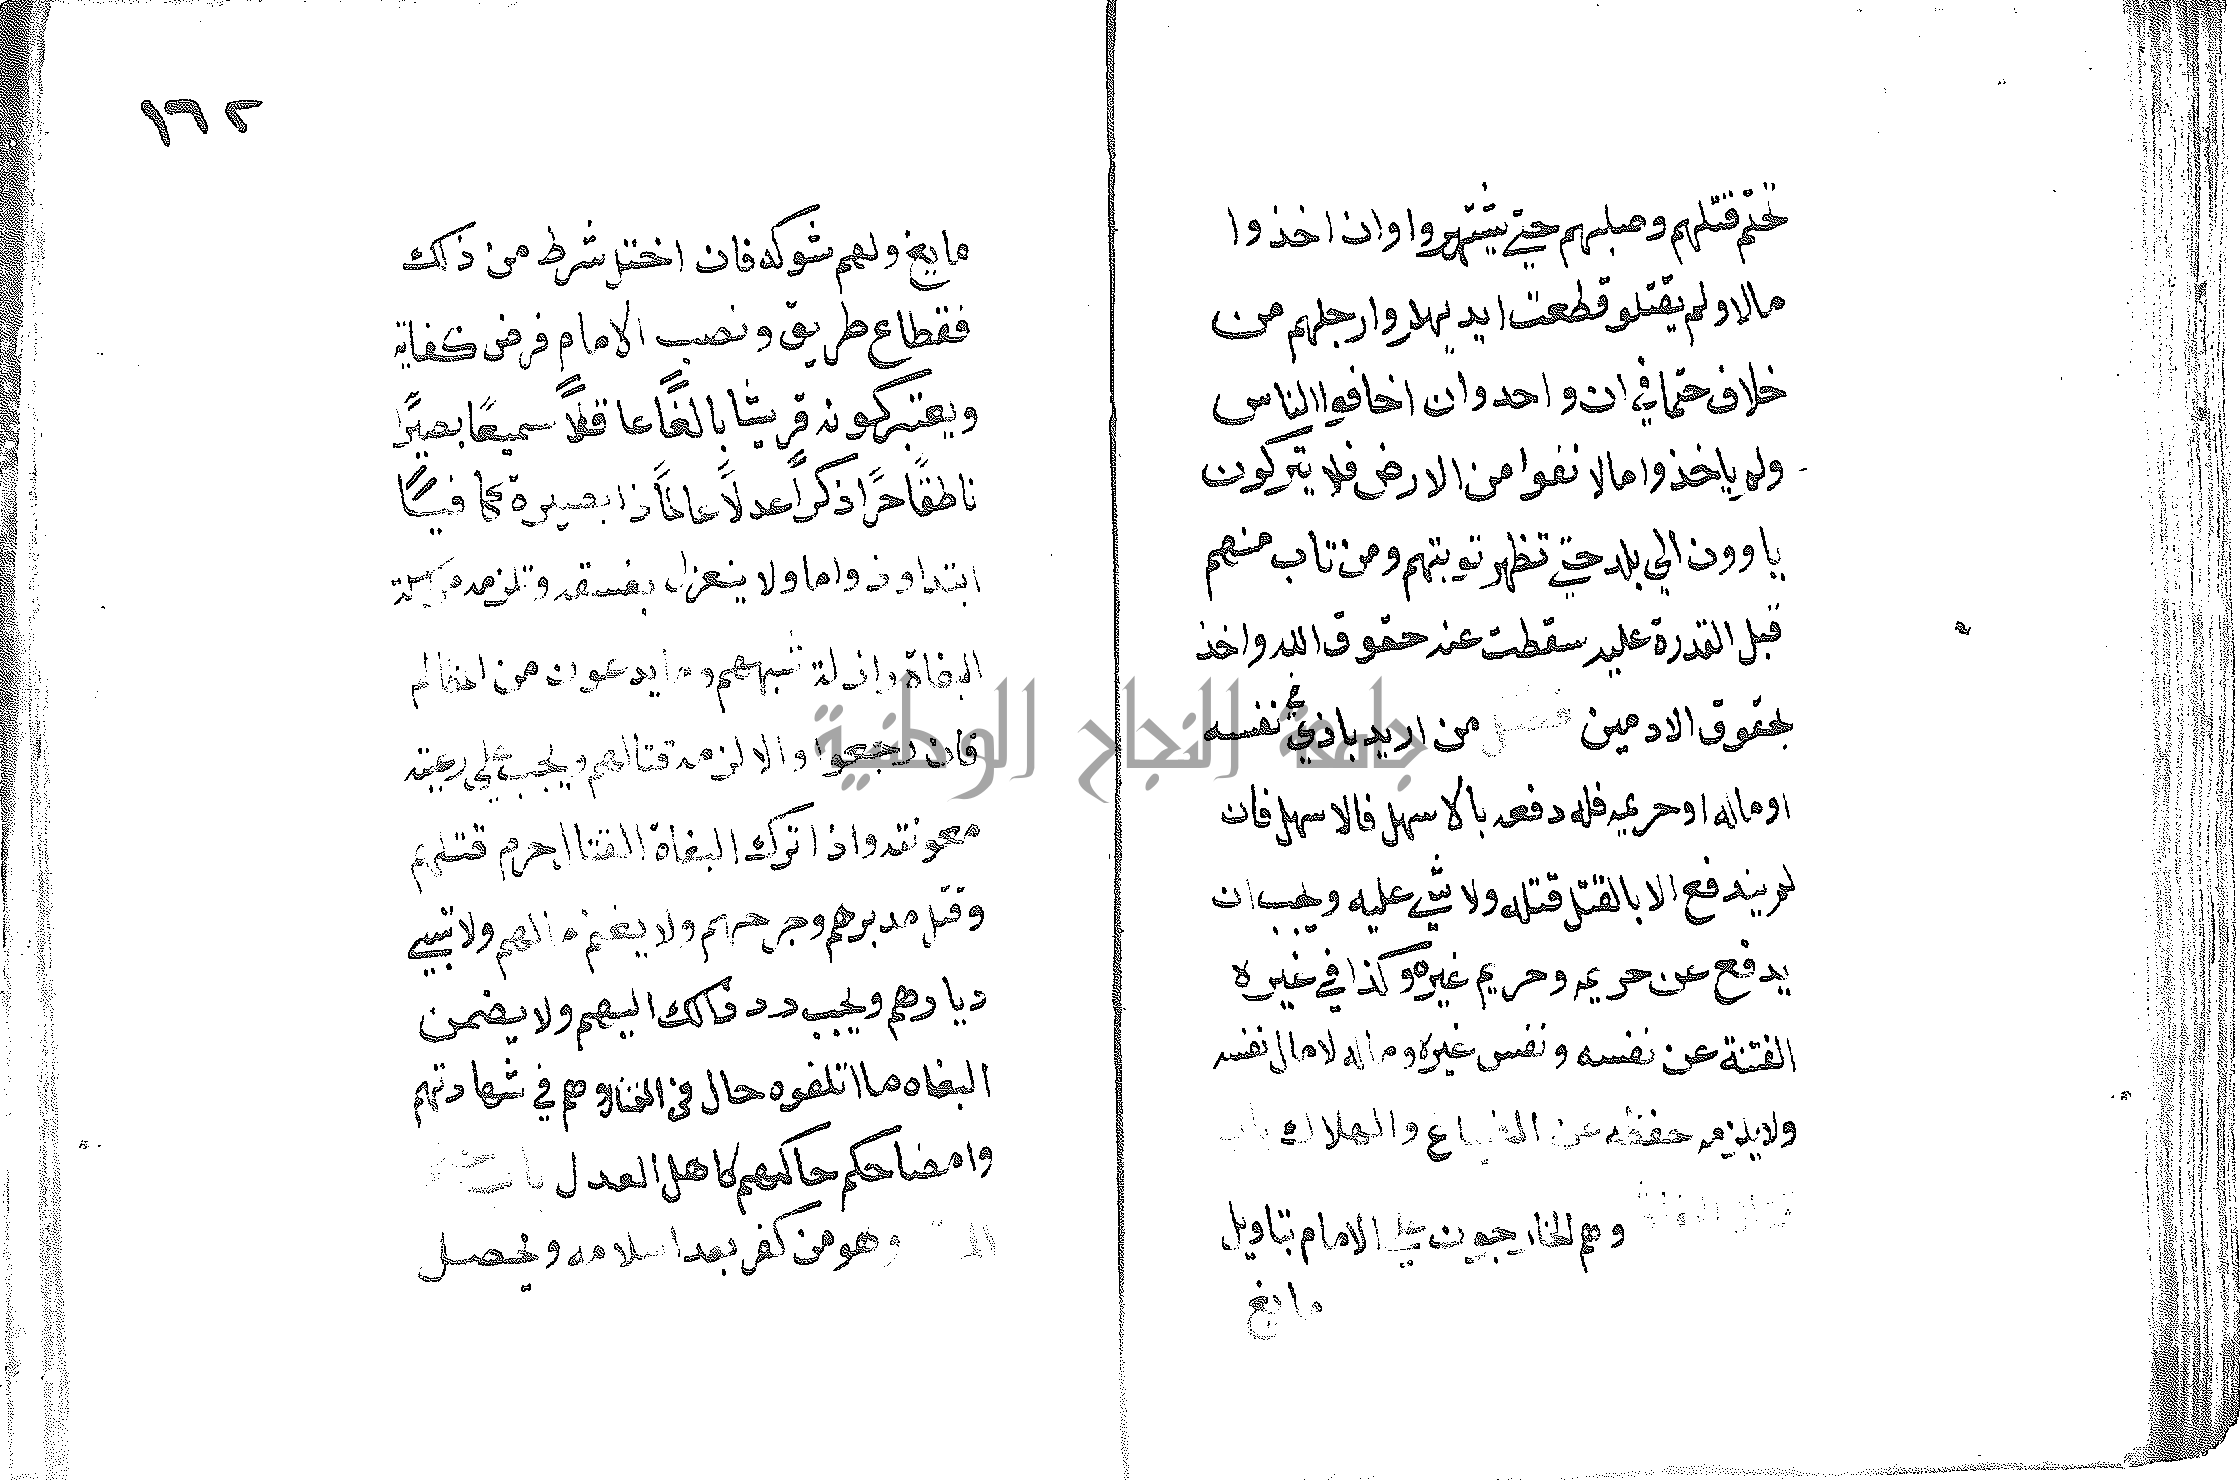 تحتم قتلهم وصلبهم حتي يشتهروا وان اخذوا
مالا ولم يقتلو قطعت ايديهم وارجلهم من
خلاف حتما في ان واحد وان اخافوا الناس
ولم ياخذوا مالا نفوا من الارض فلا يتركون
ياوون الي بلد حتي تظهر توبتهم ومن تاب منهم
قبل القدرة عليه سقطت عنه حقوق الله واخذ
بحقوق الادمين فصل من اريد باذي في نفسه
او ماله او حريمه فله دفعه بالاسهل فالاسهل فان
لم يندفع الا بالقتل قتله ولا شي عليه ويجب ان
يدفع عن حريمه وحريم غيره وكذا في غيره
الفتنة عن نفسه ونفس غيره وماله لا مال نفسه
ولا يلزمه حفظه عن الضياع والهلاك باب
قتال البغاة وهم الخارجون علي الامام بتاويل
مايغ
١٦٢
مايغ ولهم شوكه فان اختل شرط من ذلك
فقطاع طريق ونصب الامام فرض كفاية
ويعتبر كونه قريشا بالغًا عاقلاً سميعًا بصيرًا
ناطقًا حرًا ذكرًا عدلاً عالمًا ذا بصيرة كافيًا
ابتدا ودواما ولا ينعزل بفسقه وتلزمه مراسلة
البغاة وازلة شبههم وما يدعون من
فان رجعوا والا لزمه قتالهم ويجب علي رعيته
معونته واذا ترك البغاة القتال حرم قتلهم
وقتل مدبرهم وجرحهم ولا يغنم مالهم ولا تسبي
ديارهم ويجب رد ذالك اليهم ولا يضمن
البغاه ما اتلفوه حال وهم في شهادتهم
وامضا حكم حاكمهم كاهل العدل باب حكم
وهو من كفر بعد اسلامه ويحصل
جامعة النجاح الوطنية